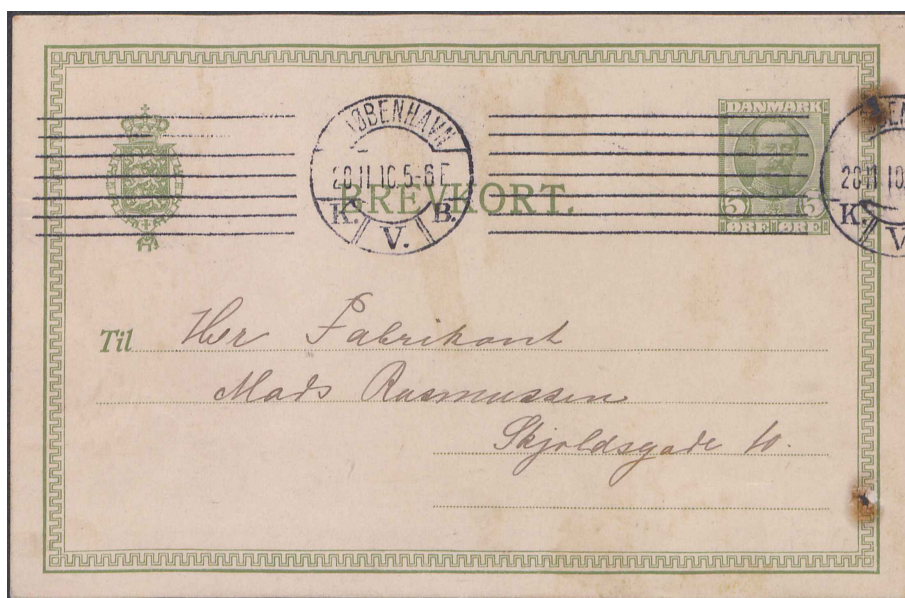 KØBENHAVN
20.11.10.5-6 E
K. B.
V.
BREVKORT.
DANMARK
5 5
ØRE ØRE
20.11.10.
K.
V
Til Herr Fabrikant
Mads Rasmussen
Skjoldsgade 10.